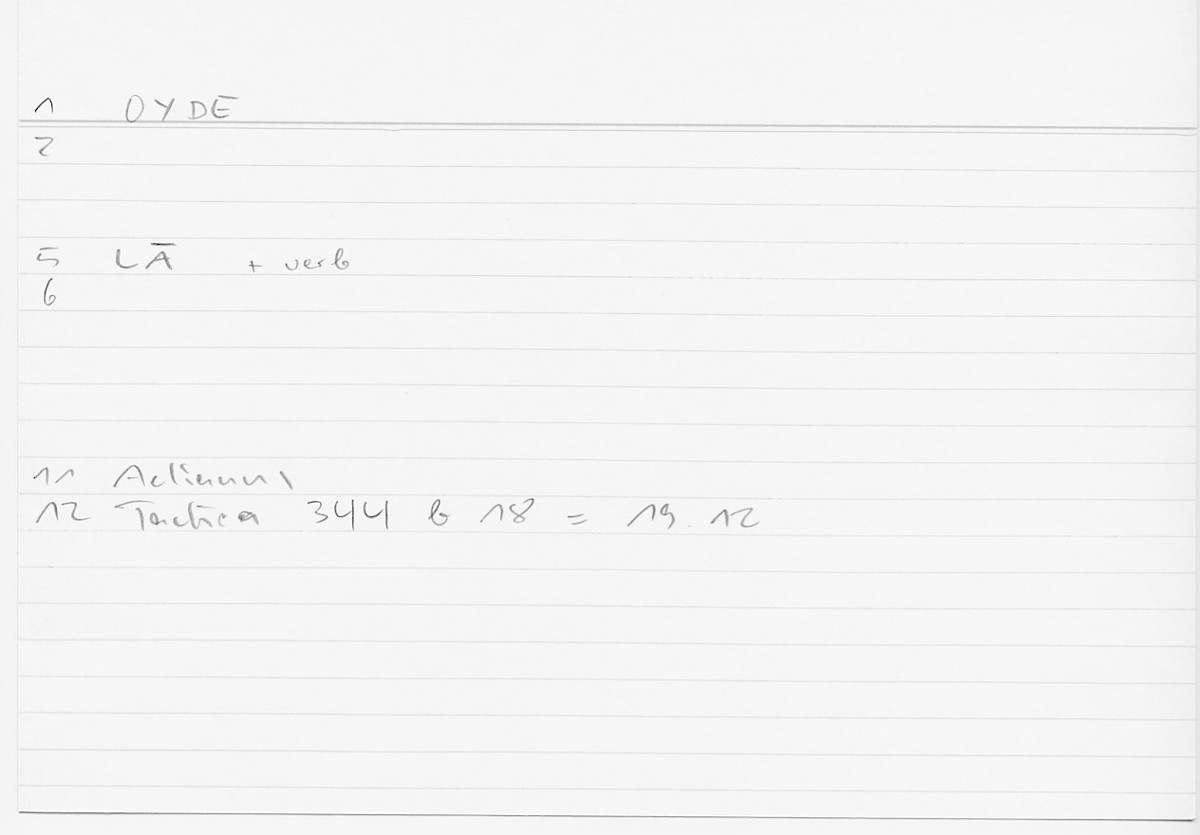 1 OYDE
2
5 LĀ + verb
6
11 Aelianus
12 Tactica 344 b 18 = 19.12